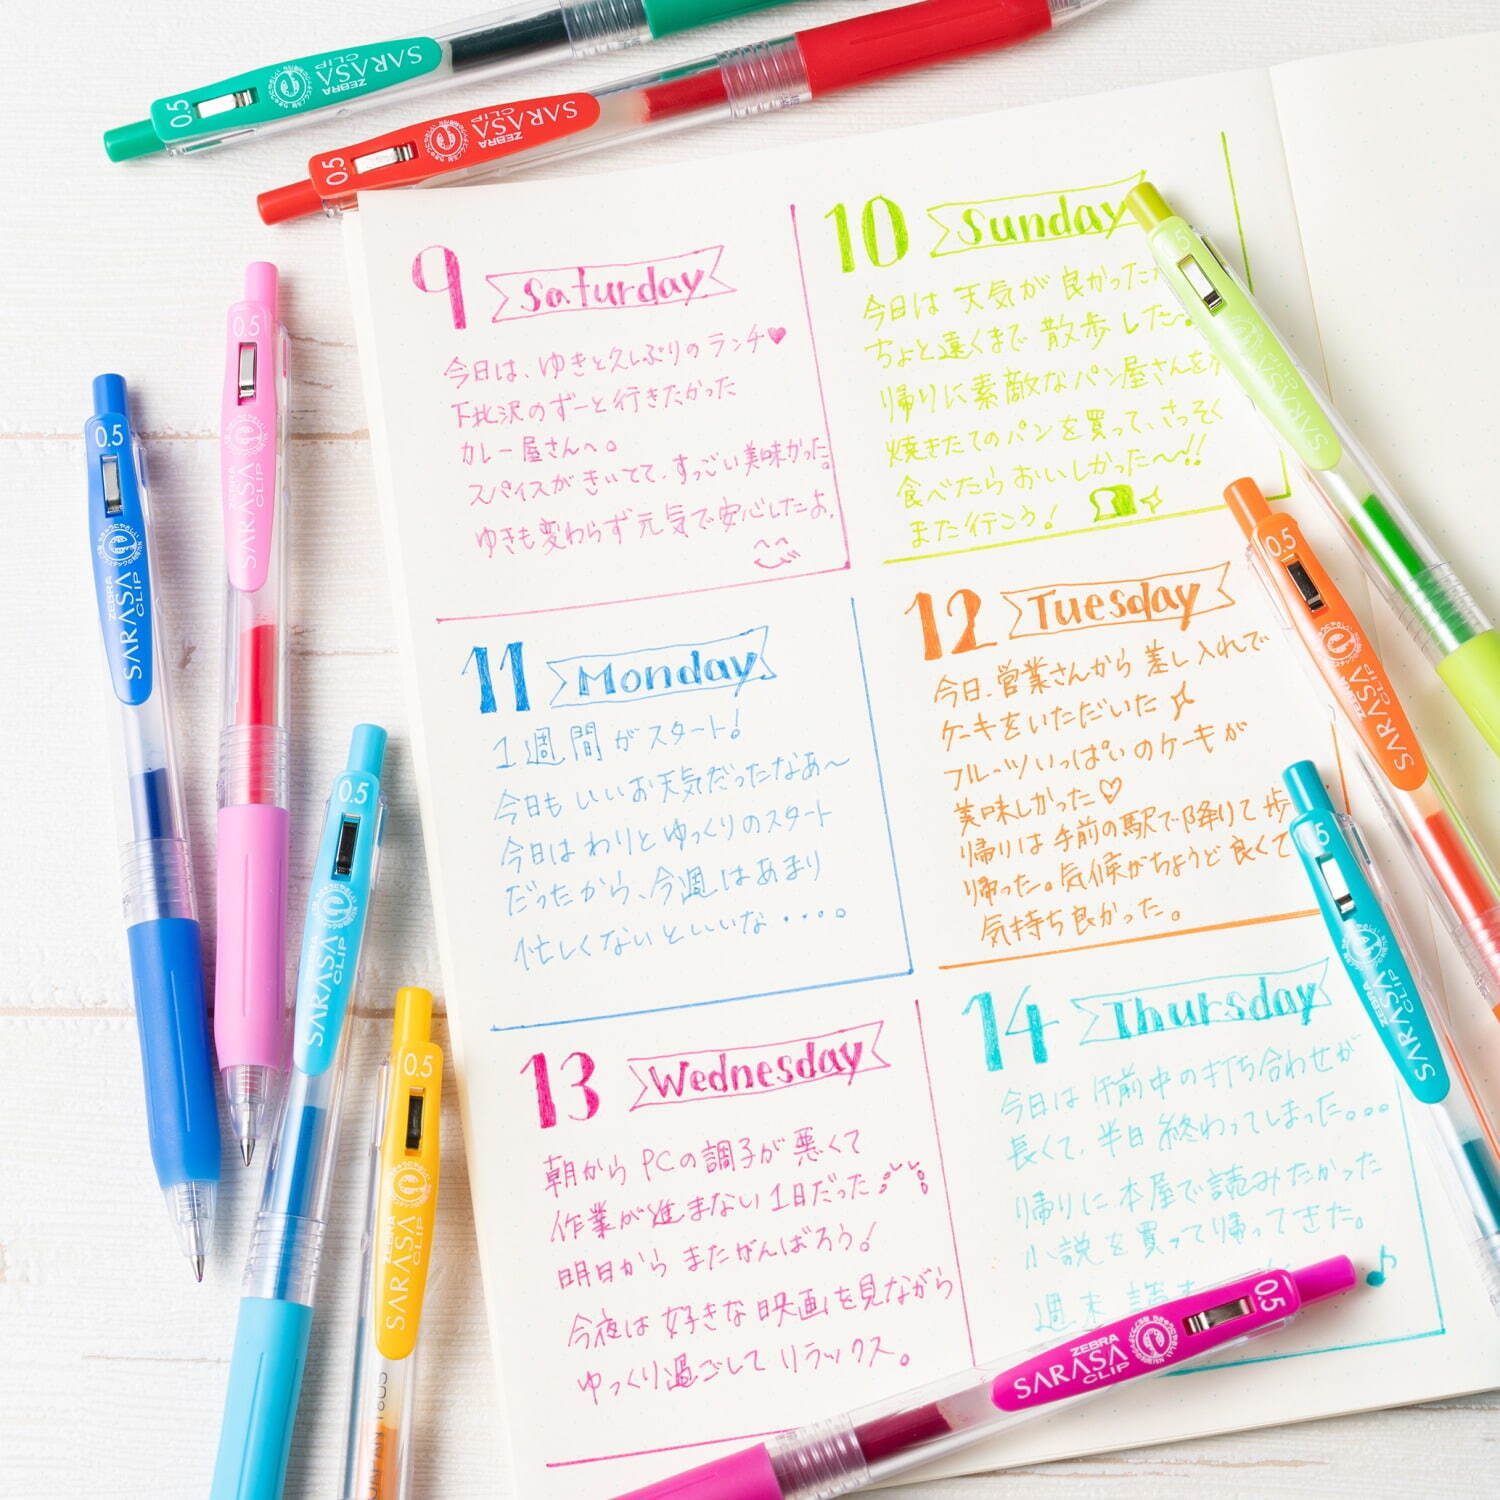 0.5
ZEBRA
SARASA
CLIP
0.5
ZEBRA
SARASA
CLIP
9
Saturday
今日は、ゆきと久しぶりのランチ♥
下北沢のずーと行きたかった
カレー屋さんへ。
スパイスがきいてて、すっごい美味かった。
ゆきも変わらず元気で安心したよ。
10
Sunday
今日は 天気が 良かった
ちょと遠くまで 散歩 した〜。
帰りに素敵なパン屋さんを
焼きたてのパンを買って、さっそく
食べたらおいしかった〜!!
また行こう!
11
Monday
1週間がスタート!
今日も いいお天気だったなあ〜
今日は わりと ゆっくりのスタート
だったから、今週はあまり
忙しくないといいな・・・・。
12
Tuesday
今日、営業さんから 差し入れで
ケーキをいただいた
フルーツいっぱいのケーキが
美味しかった♡
帰りは 手前の駅で降りて歩
帰った。気候がちょうど良くて
気持ち良かった。
13
Wednesday
朝から PCの調子が悪くて
作業が進まない1日だった
明日から またがんばろう!
今夜は 好きな映画を見ながら
ゆっくり過ごして リラックス。
14
Thursday
今日は 午前中の打ち合わせが
長くて、半日 終わってしまった。。。
帰りに 本屋で読みたかった
小説 を 買って帰ってきた。
週末
♪
0.5
ZEBRA
SARASA
CLIP
0.5
ZEBRA
SARASA
CLIP
0.5
ZEBRA
SARASA
CLIP
0.5
ZEBRA
SARASA
CLIP
JAPAN
SARASA
CLIP
0.5
ZEBRA
SARASA
CLIP
ZEBRA
SARASA
CLIP
0.5
ZEBRA
SARASA
CLIP